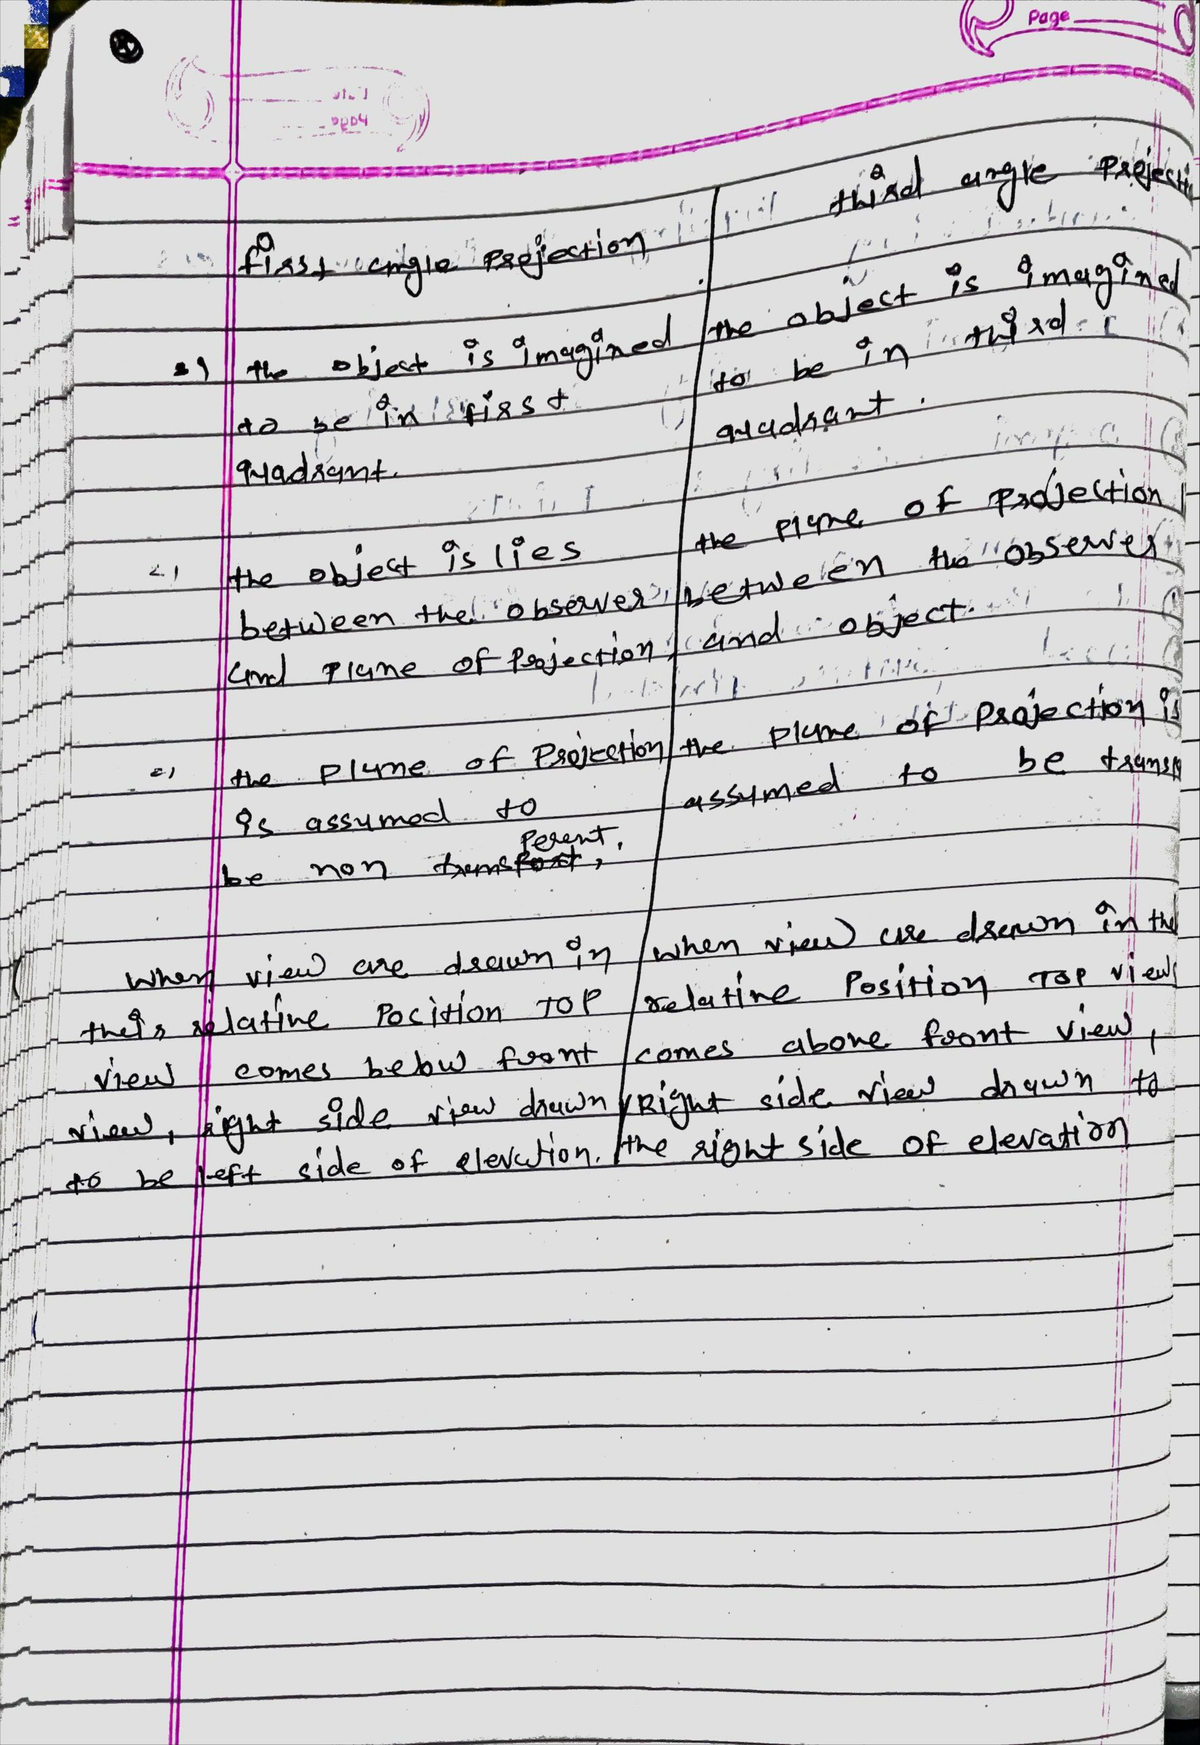 Page
third angle Projecti
first angle Projection
the object is imagined
to be in first
quadrant.
the object is imagined
to be in third
quadrant.
2) the object is lies
between the observer
and Plane of Projection
the Plane of Projection
between the observer
and object.
the Plane of Projection
is assumed to
be non transperent.
the Plane of Projection is
assumed to be transp
when view are drawn in
their relative Pocition TOP
view comes below front
view, right side view drawn
to be left side of elevation.
when view are drawn in the
relative Position TOP view
comes above front view,
Right side view drawn to
the right side of elevation